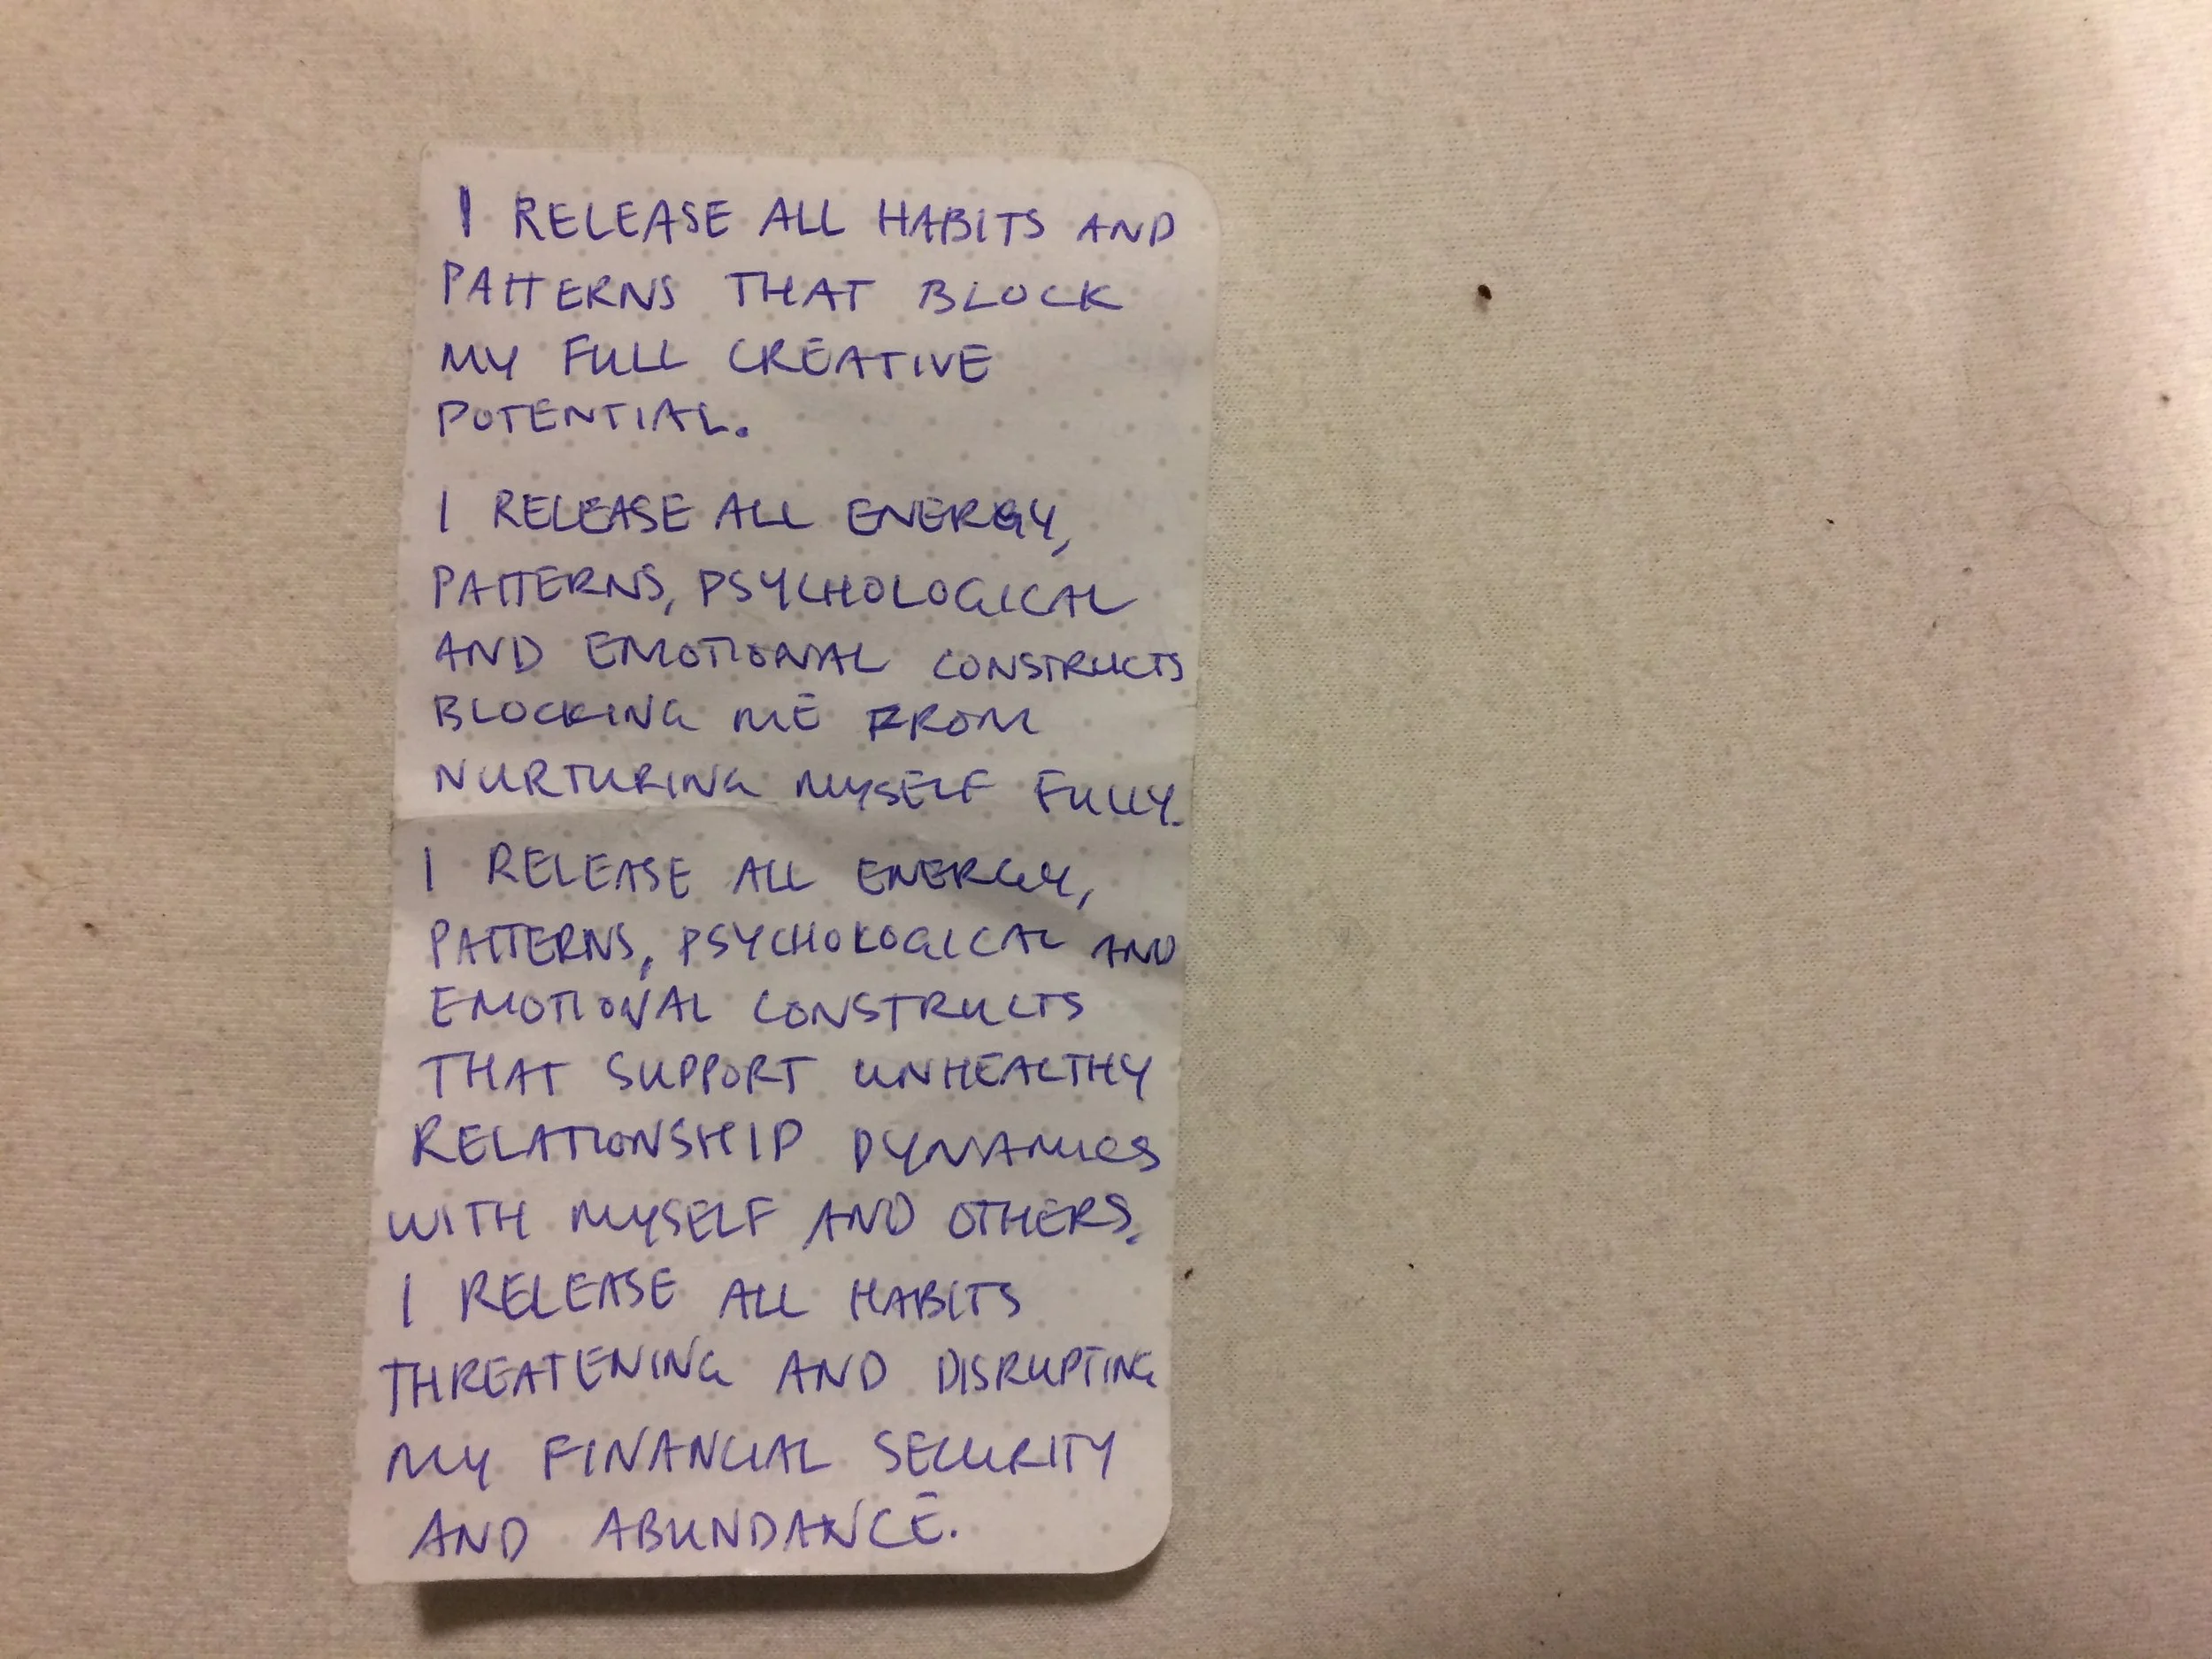 I RELEASE ALL HABITS AND
PATTERNS THAT BLOCK
MY FULL CREATIVE
POTENTIAL.
I RELEASE ALL ENERGY,
PATTERNS, PSYCHOLOGICAL
AND EMOTIONAL CONSTRUCTS
BLOCKING ME FROM
NURTURING MYSELF FULLY.
I RELEASE ALL ENERGY,
PATTERNS, PSYCHOLOGICAL AND
EMOTIONAL CONSTRUCTS
THAT SUPPORT UNHEALTHY
RELATIONSHIP DYNAMICS
WITH MYSELF AND OTHERS.
I RELEASE ALL HABITS
THREATENING AND DISRUPTING
MY FINANCIAL SECURITY
AND ABUNDANCE.